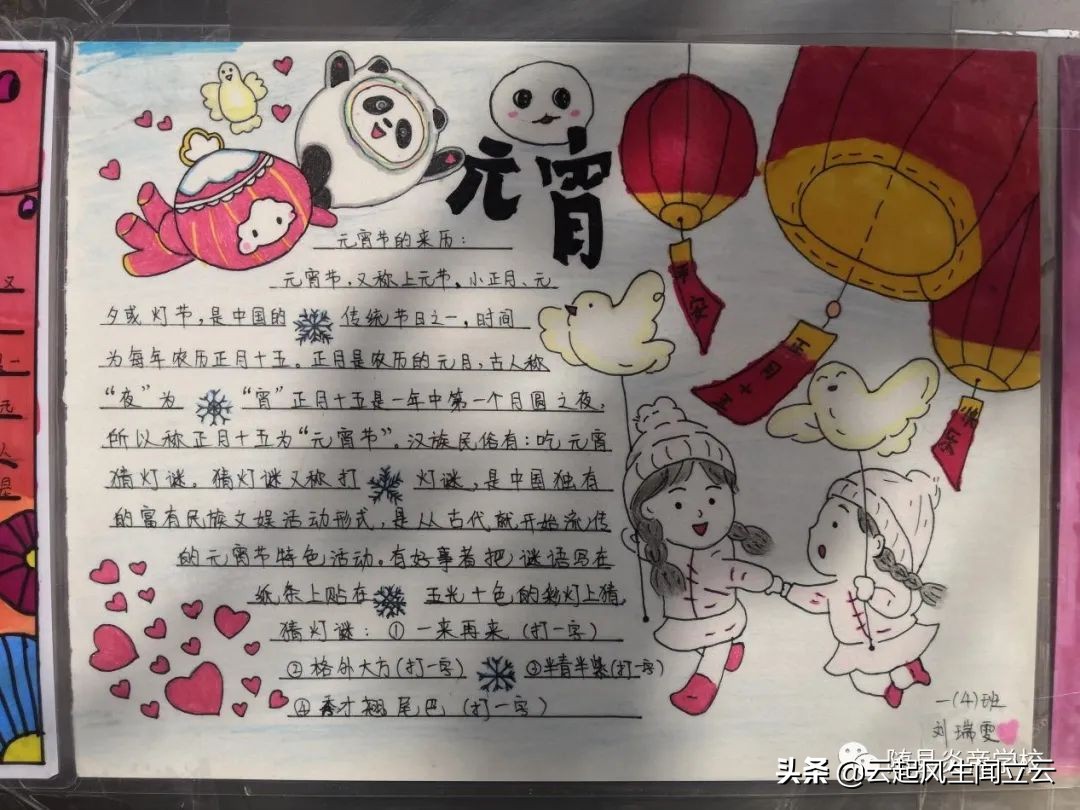 元宵
元宵节的来历:
元宵节,又称上元节、小正月、元
夕或灯节,是中国的 传统节日之一,时间
为每年农历正月十五。正月是农历的元月,古人称
“夜”为 “宵”正月十五是一年中第一个月圆之夜,
所以称正月十五为“元宵节”。汉族民俗有:吃元宵
猜灯谜。猜灯谜又称打 灯谜,是中国独有
的富有民族文娱活动形式,是从古代就开始流传
的元宵节特色活动。有好事者把谜语写在
纸条上贴在 五光十色的彩灯上猜,
猜灯谜:①一来再来(打一字)
②格外大方(打一字) ③半青半紫(打一字)
④秀才翘尾巴(打一字)
正月十五
快乐
一(4)班
刘瑞雯
随县炎帝学校
头条@云起风生闻立云